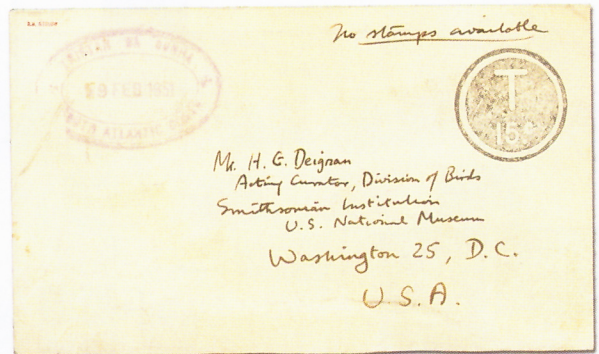 No stamps available
TRISTAN DA CUNHA
FEB 1951
SOUTH ATLANTIC
T
15c
Mr. H. G. Deignan
Acting Curator, Division of Birds
Smithsonian Institution
U.S. National Museum
Washington 25, D.C.
U.S.A.